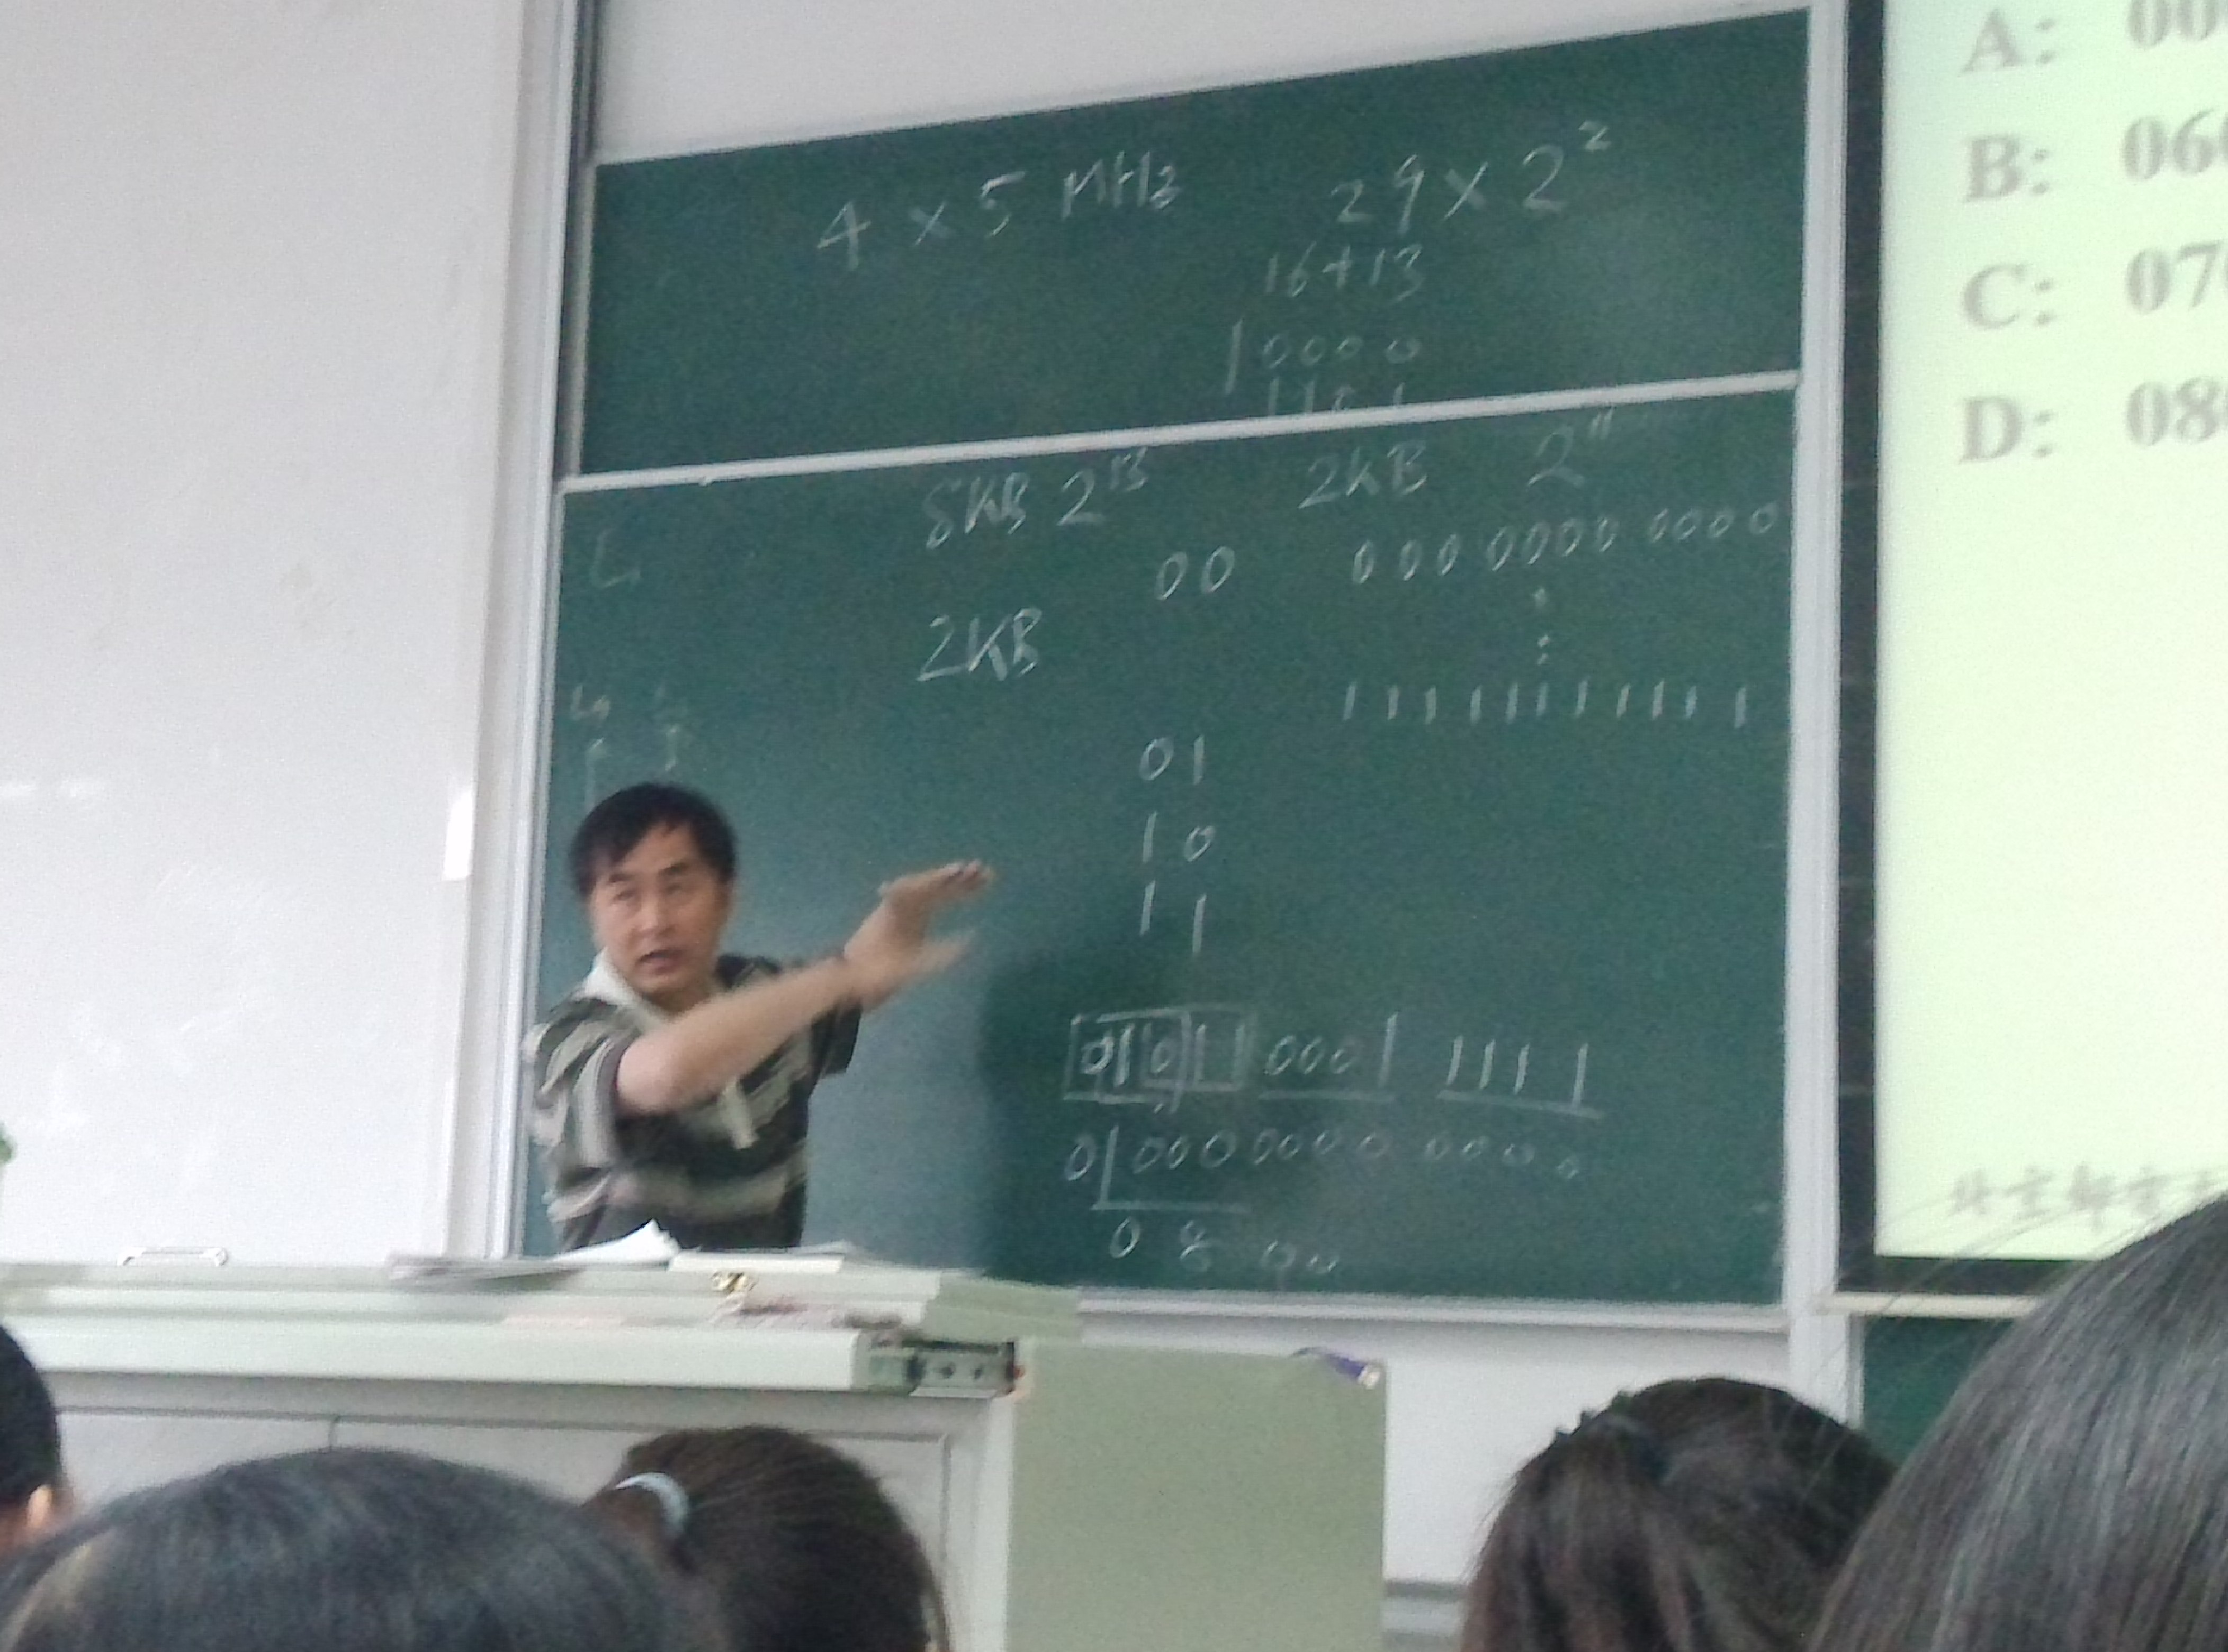 4 × 5 MHz
29 × 2²
16+13
10000
1101
8KB 2¹³
2KB 2¹¹
00 000 0000 0000
2KB
11111111111
01
10
11
01011 0001 1111
01 000 0000 0000
0800
A: 00
B: 060
C: 070
D: 080